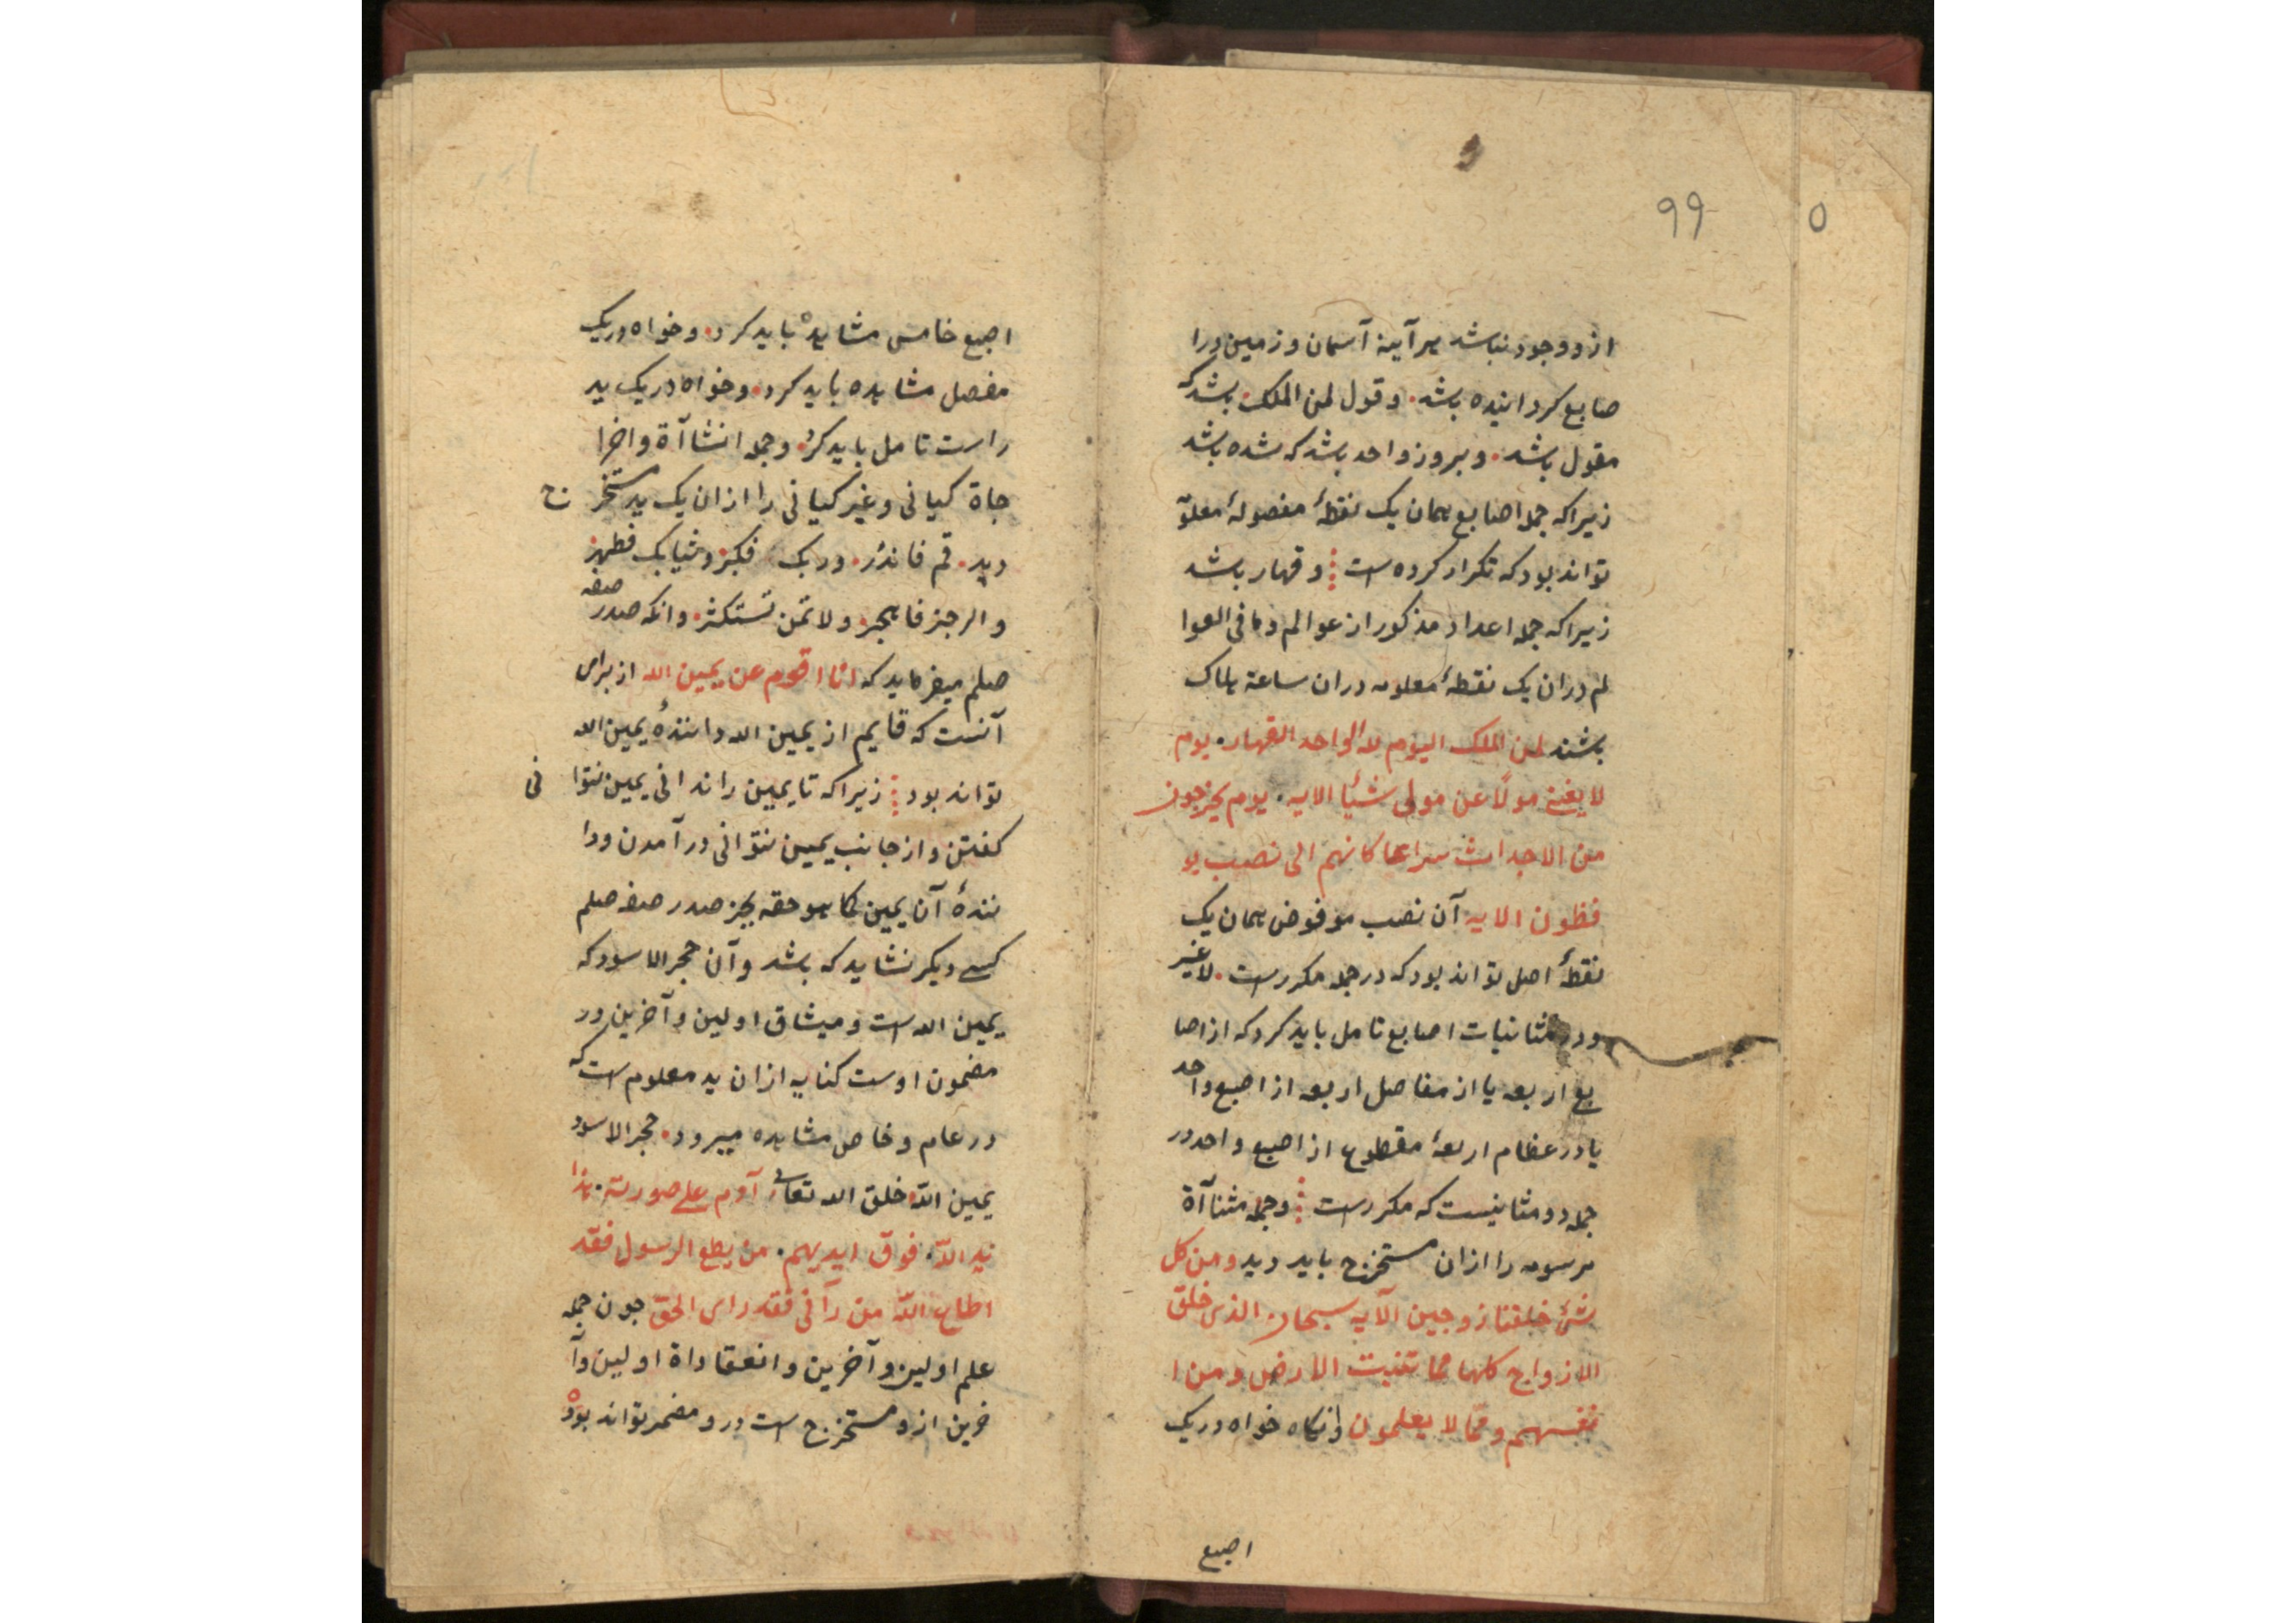 ۹۹
۵
ازو وجود نباشد هر آینه آسمان و زمین ورا
صابع کردانیده باشد. و قول لمن الملک باشد که
مقول باشد. و بروز واحد باشد که شده باشد
زیرا که جمله اصابع همان یک نقطهٔ مفصولهٔ معلوّ
تواند بود که تکرار کرده است و قهار باشد
زیرا که جمله اعداد مذکور از عوالم و ما فی العوا
لم دران یک نقطهٔ معلومه دران ساعة هلاک
باشند لمن الملک الیوم لله الواحد القهار. یوم
لا یغنی مولًا عن مولی شیئا الایه. یوم یخرجون
من الاجداث سراعا کانهم الی نصب یو
فظون الایه آن نصب موفوض همان یک
نقطهٔ اصل تواند بود که در جمله مکررست. لا غیر
و در مثانیات اصابع تامل باید کرد که از اصا
بع اربعه یا از مفاصل اربعه از اصبع واحد
یا در عظام اربعهٔ مقطوع از اصبع واحد در
جمله دو مثانیست که مکررست و جمله مثناآة
مرسومه را ازان مستخرج باید دید و من کل
شیٔ خلقنا زوجین الآیه سبحان الذی خلق
الازواج کلها مما تنبت الارض و من ا
نفسهم و ممّا لا یعلمون وانکاه خواه در یک
اصبع
اصبع خامس مشاهدهٔ باید کرد. و خواه در یک
مفصل مشاهده باید کرد. و خواه در یک ید
راست تامل باید کرد. و جمله انشاآة و اخرا
جاة کیانی و غیر کیانی را ازان یک ید مستخر ج
دید. قم فانذر. و ربک فکبر. و ثیابک فطهر.
و الرجز فاهجر. و لا تمنن تستکثر. وانکه صدر صفه
صلم میفرماید که انا اقوم عن یمین الله از برای
آنست که قایم از یمین الله دانندهٔ یمین الله
تواند بود زیرا که تا یمین را ندانی یمین نتوا نی
کفتن و از جانب یمین نتوانی درآمدن و دا
نندهٔ آن یمین کما هو حقه بجز صدر صفه صلم
کسی دیکر نشاید که باشد و آن حجر الاسود که
یمین الله است و میثاق اولین و آخرین در
مضمون اوست کنایه ازان ید معلوم است که
در عام و خاص مشاهده میرود. حجر الاسود
یمین اللّه خلق الله تعالی آدم علی صورته. هذا
ید اللّه. فوق ایدیهم. من یطع الرسول فقد
اطاع اللّه من رآنی فقد رای الحق جون جمله
علم اولین و آخرین و انعقاداة اولین و آ
خرین ازو مستخرج است و درو مضمر تواند بود